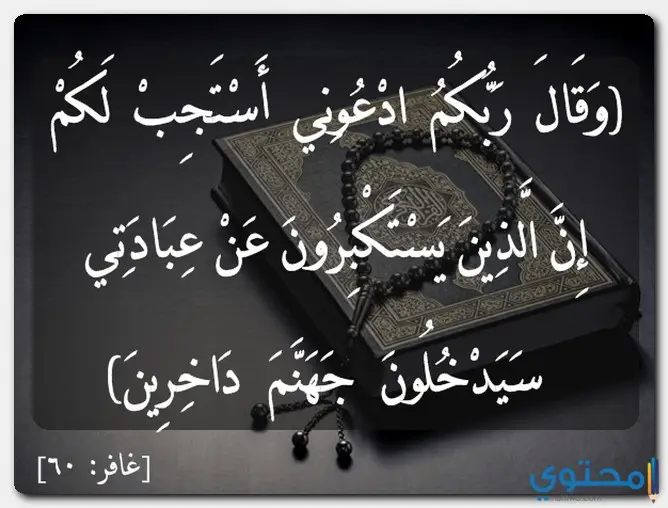 (وَقَالَ رَبُّكُمُ ادْعُونِي أَسْتَجِبْ لَكُمْ
إِنَّ الَّذِينَ يَسْتَكْبِرُونَ عَنْ عِبَادَتِي
سَيَدْخُلُونَ جَهَنَّمَ دَاخِرِينَ)
[غافر: ٦٠]
محتوي